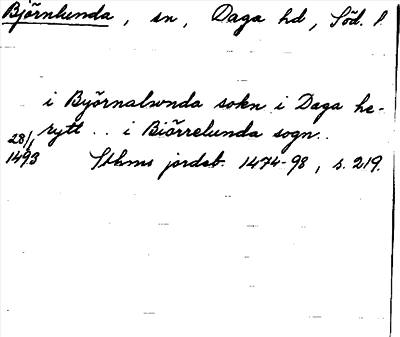 Björnlunda, sn, Daga hd, Söd. l.
i Byörnalwnda sokn i Daga he-
rytt .. i Biörrelunda sogn..
28/1
1493 Sthms jordeb. 1474-98, s. 219.